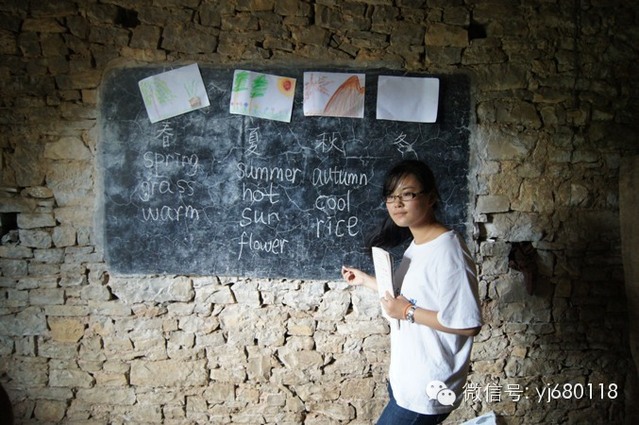 春 夏 秋 冬
spring summer autumn
grass hot cool
warm sun rice
flower
微信号: yj680118